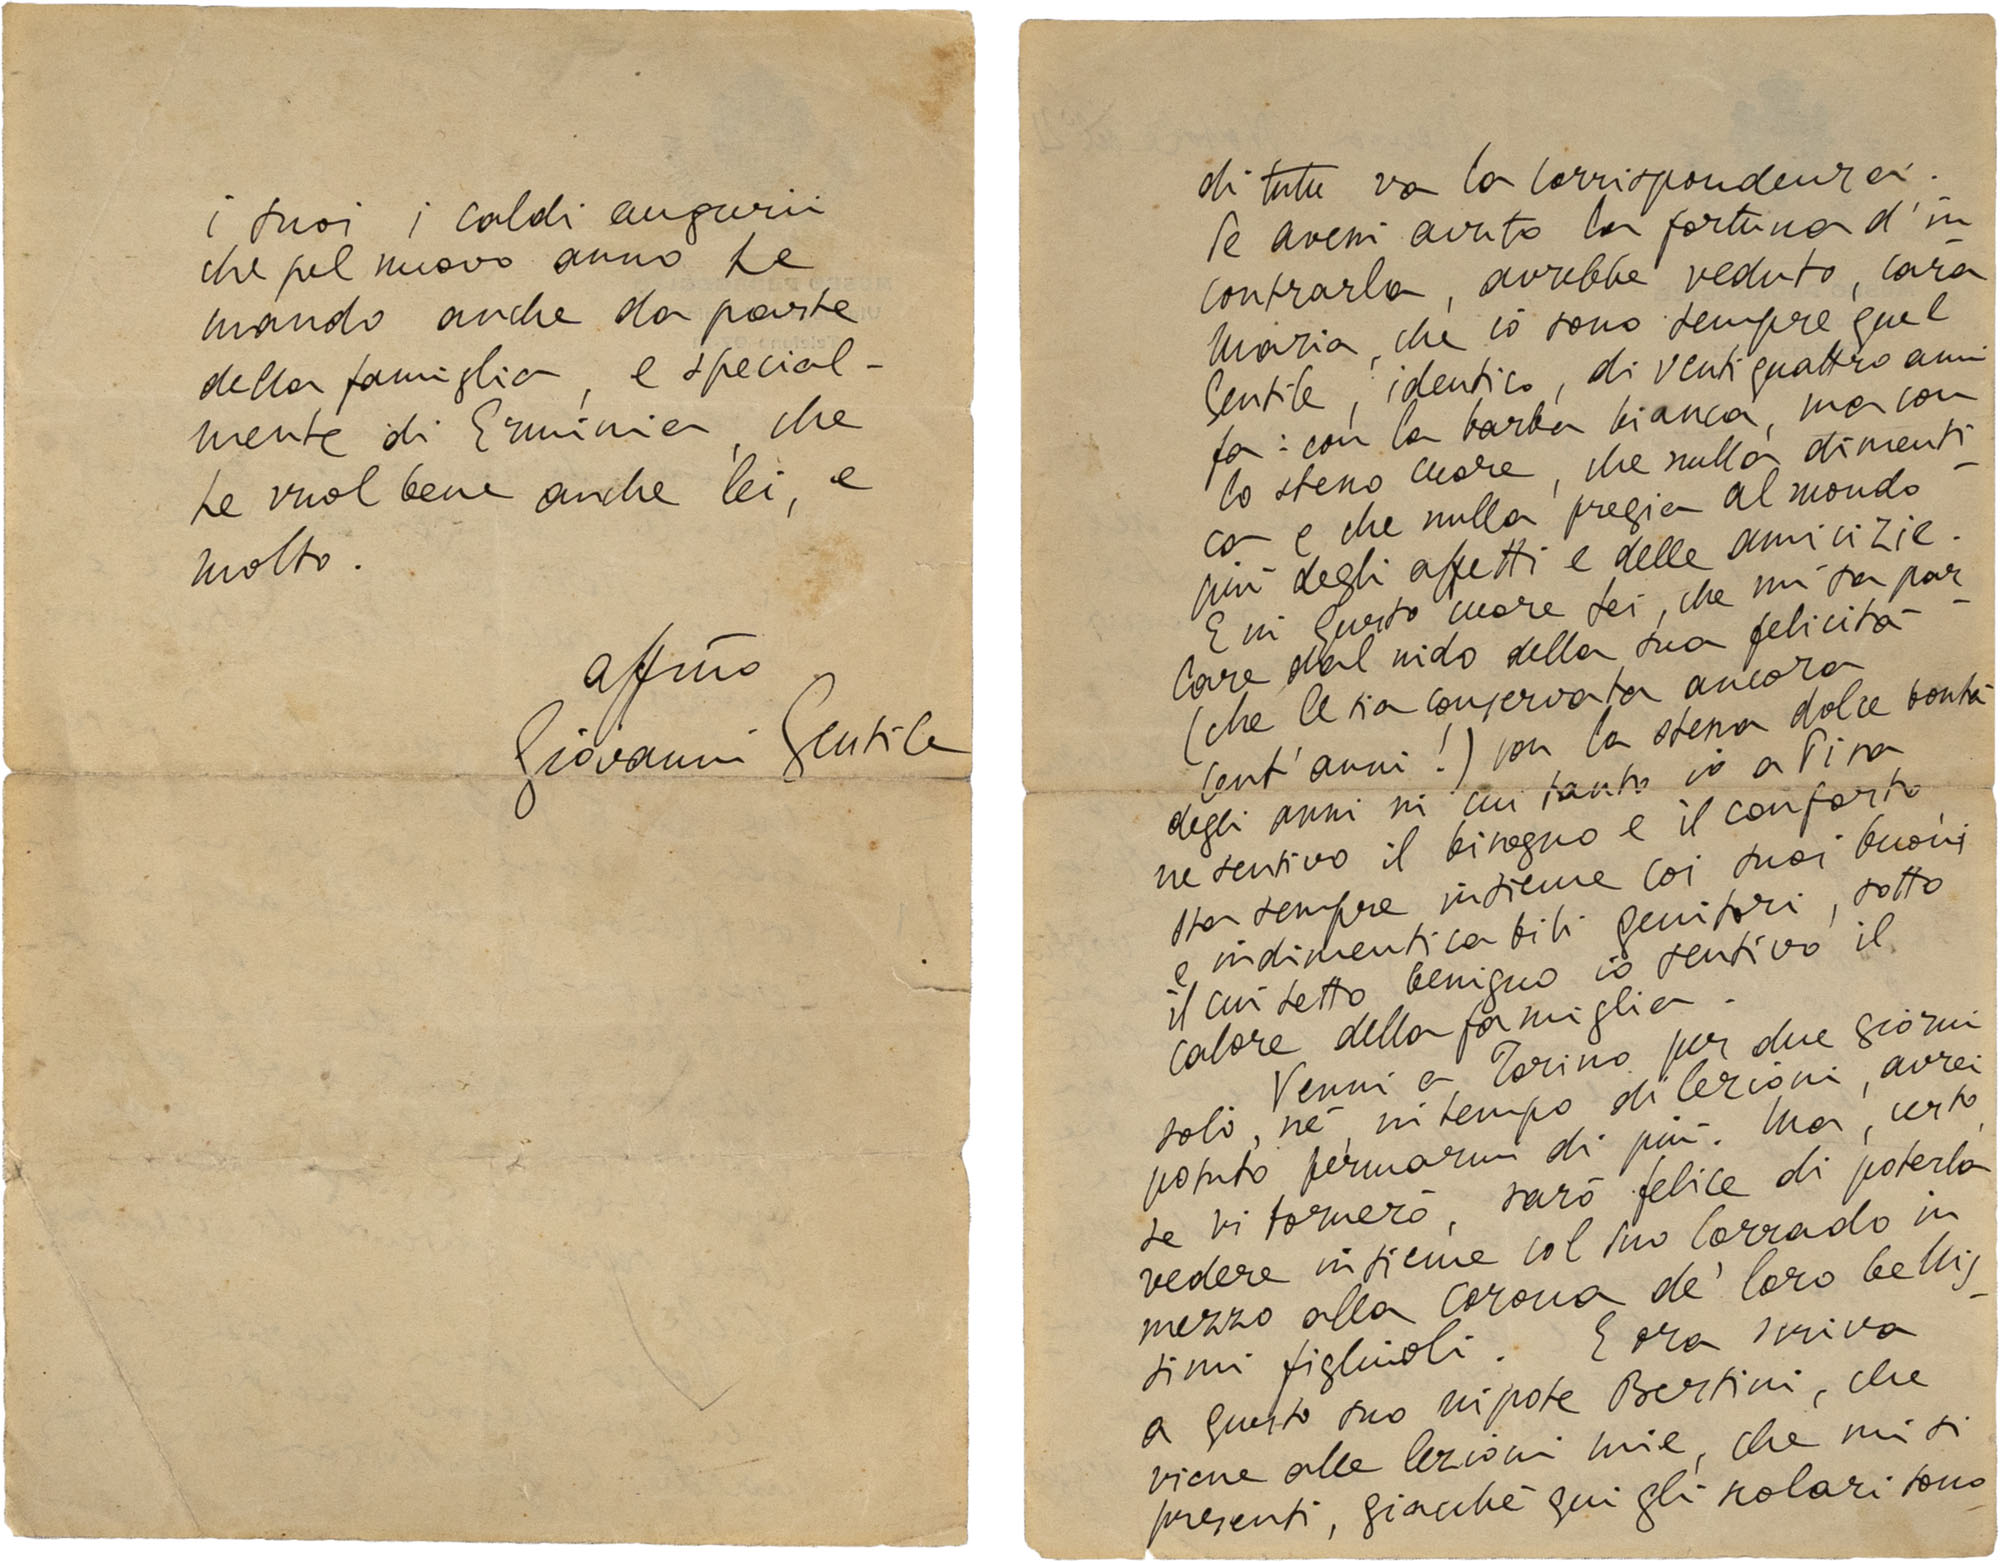 i suoi i caldi augurii
che pel nuovo anno Le
mando anche da parte
della famiglia, e special-
mente di Erminia, che
Le vuol bene anche lei, e
molto.
Affmo
Giovanni Gentile
di tutta va la corrispondenza.
Se avessi avuto la fortuna d'in-
contrarla, avrebbe veduto, cara
Maria, che io sono sempre quel
Gentile, identico, di ventiquattro anni
fa: con la barba bianca, ma con
lo stesso cuore, che nulla dimenti-
ca e che nulla pregia al mondo
più degli affetti e delle amicizie.
E in questo cuore Lei, che mi sa par-
lare dal nido della sua felicità
(che Le sia conservata ancora
cent'anni!) con la stessa dolce bontà
degli anni in cui tanto io a Pisa
ne sentivo il bisogno e il conforto
sta sempre insieme coi suoi buoni
e indimenticabili genitori, sotto
il cui tetto benigno io sentivo il
calore della famiglia.
Venni a Torino per due giorni
soli, né, in tempo di lezioni, avrei
potuto fermarmi di più. Ma, certo,
se vi tornerò, sarò felice di poterla
vedere insieme col suo Corrado in
mezzo alla corona de' loro bellis-
simi figliuoli. E ora scriva
a questo suo nipote Bertini, che
viene alle lezioni mie, che mi si
presenti, giacché qui gli scolari sono